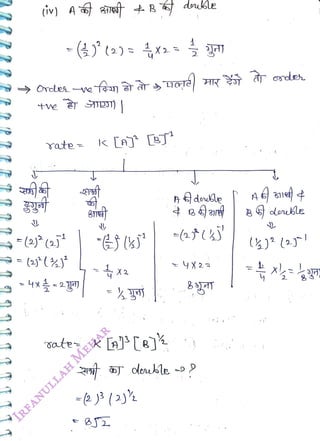 (iv) A की आधी & B की double
= (1/2)² (2) = 1/4 × 2 = 1/2 गुना
→ Order -ve दिया हो तो → पलटी मार देंगे तो order
+ve हो जाएगा |
rate = K [A]² [B]⁻¹
सभी की दुगुनी
⇓
= (2)² (2)⁻¹
= (2)² (1/2)¹
= 4 × 1/2 = 2 गुना
सभी की आधी
⇓
= (1/2)² (1/2)⁻¹
= 1/4 × 2
= 1/2 गुना
A की double & B की आधी
= (2)² (1/2)⁻¹
= 4 × 2 =
8 गुना
A की आधी & B की double
(1/2)² (2)⁻¹
= 1/4 × 1/2 = 1/8 गुना
rate = K [A]³ [B]^1/2
सभी का double → ?
= (2)³ (2)^1/2
= 8√2
IRFANULLAH MEKAR